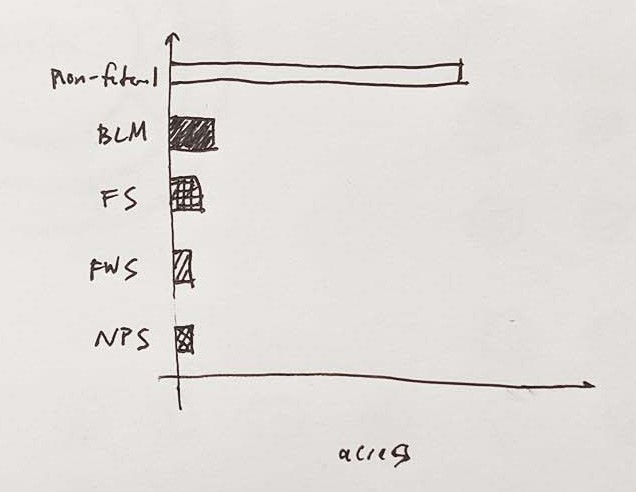 non-federal
BLM
FS
FWS
NPS
acres